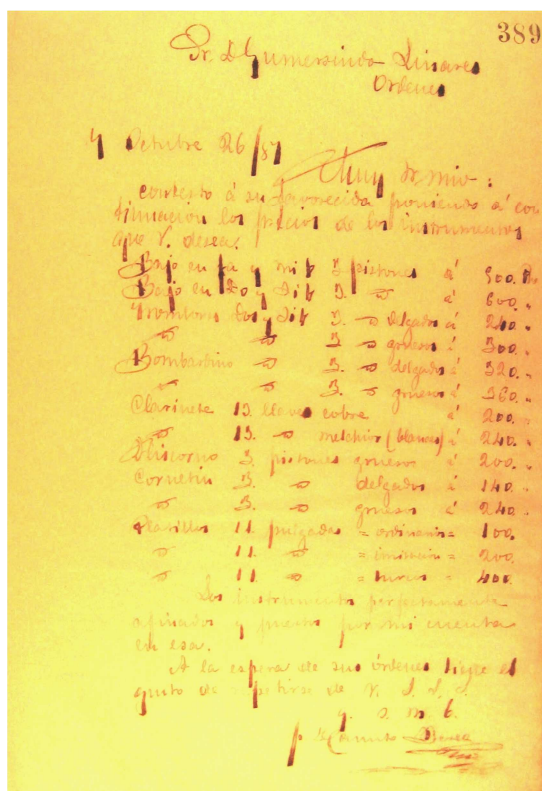 389
Sr. D. Gumersindo Linares
Ordenes
Octubre 26/87
Muy Sr. mio:
contesto á su favorecida poniendo á con
tinuación los précios de los instrumentos
que V. desea.
Bajo en fa y mib 3 pistones á 500. Rs
Bajo en Do y Sib 3. " á 600. "
Trombones Do y Sib 3. " delgados á 240. "
" " 3. " gruesos á 300. "
Bombardino " 3. " delgados á 320. "
" " 3. " gruesos á 360. "
Clarinete 13 llaves cobre á 200. "
" 13. " melchior (blancas) á 240. "
Fliscorno 3. pistones gruesos á 200. "
Cornetin 3. " delgados á 140. "
" 3. " gruesos á 240. "
Platillos 11 pulgadas = ordinarios = 100.
" 11. " = imitacion = 200.
" 11. " = turcos = 400.
Los instrumentos perfectamente
afinados y puestos por mi cuenta
en esa.
A la espera de sus órdenes tiene el
gusto de repetirse de V. S. S. S.
q. s. m. b.
p. Canuto Berea